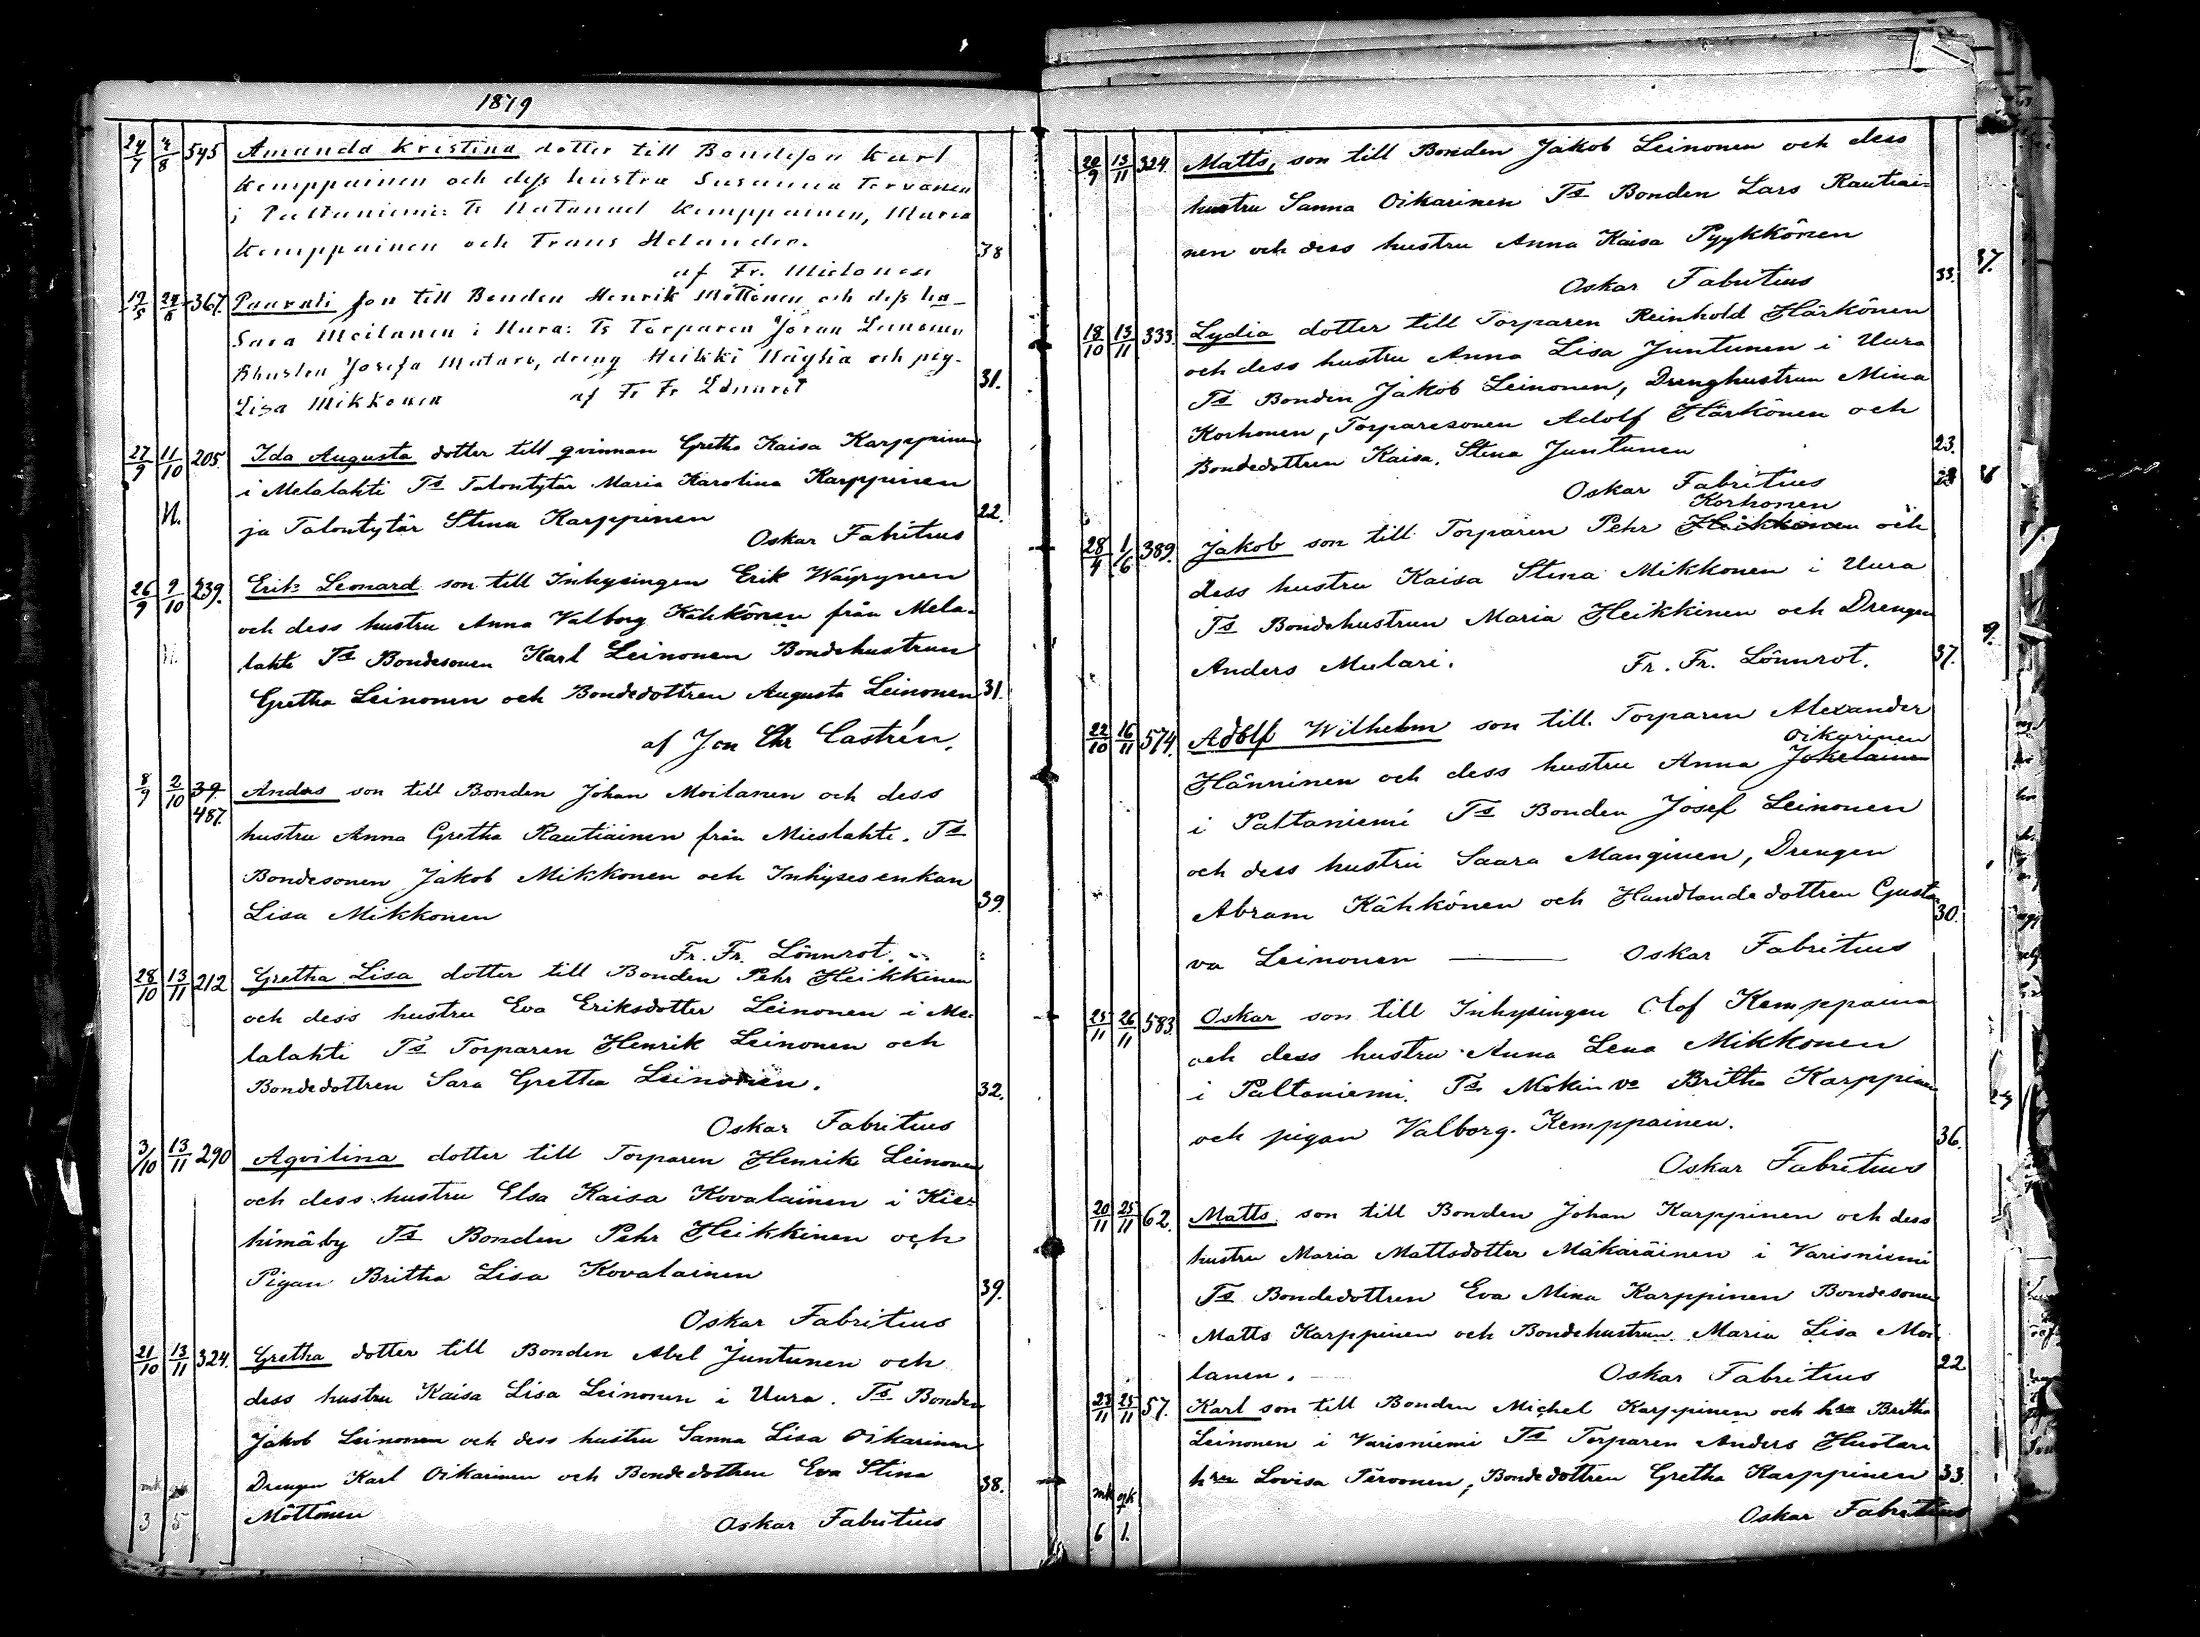 1879
24/7 4/8 545 Amanda Kristina dotter till Bondeson Karl
Kemppainen och dess hustru Susanna Tervonen
i Paltaniemi: Ts Natanael Kemppainen, Maria
Kemppainen och Frans Helander. 38
af Fr. Mielonen
19/5 24/8 367. Paavali son till Bonden Henrik Möttönen och dess hu-
Sara Moilanen i Uura: Ts Torparen Jöran Leinonen
Bhustru Josefa Mulari, dreng Heikki Näyhä och pig.
Lisa Mikkonen af Fr Fr Lönnrot 31.
27/9 11/10 205. Ida Augusta dotter till qvinnan Gretha Kaisa Karppinen
i Melalahti Ts Talontytär Maria Karolina Karppinen
N. ja Talontytär Stina Karppinen 22.
Oskar Fabritius
26/9 9/10 239. Erik Leonard son till Inhysingen Erik Wäyrynen
och dess hustru Anna Valborg Kähkönen från Mela-
lahti Ts Bondesonen Karl Leinonen Bondehustrun
Gretha Leinonen och Bondedottren Augusta Leinonen 31.
af Jon Chr Castrén.
8/9 2/10 39 Anders son till Bonden Johan Moilanen och dess
487. hustru Anna Gretha Rautiainen från Mieslahti. Ts
Bondesonen Jakob Mikkonen och Inhysesenkan
Lisa Mikkonen 39.
Fr. Fr. Lönnrot.
28/10 13/11 212 Gretha Lisa dotter till Bonden Pehr Heikkinen
och dess hustru Eva Eriksdotter Leinonen i Me-
lalahti Ts Torparen Henrik Leinonen och
Bondedottren Sara Gretha Leinonen. 32.
Oskar Fabritius
3/10 13/11 290 Aqvilina dotter till Torparen Henrik Leinonen
och dess hustru Elsa Kaisa Kovalainen i Kie-
himäby Ts Bonden Pehr Heikkinen och
Pigan Britha Lisa Kovalainen 39.
Oskar Fabritius
21/10 13/11 324. Gretha dotter till Bonden Abel Juntunen och
dess hustru Kaisa Lisa Leinonen i Uura. Ts Bonden
Jakob Leinonen och dess hustru Sanna Lisa Oikarinen
Drengen Karl Oikarinen och Bondedottren Eva Stina 38.
Möttönen Oskar Fabritius
3 5
20/9 13/11 324. Matts, son till Bonden Jakob Leinonen och dess
hustru Sanna Oikarinen Ts Bonden Lars Rautiai-
nen och dess hustru Anna Kaisa Pyykkönen
Oskar Fabritius 33. 37.
18/10 13/11 333. Lydia dotter till Torparen Reinhold Härkönen
och dess hustru Anna Lisa Juntunen i Uura
Ts Bonden Jakob Leinonen, Drenghustrun Mina
Korhonen, Torparesonen Adolf Härkönen och
Bondedottren Kaisa Stina Juntunen 23.
Oskar Fabritius
Korhonen
28/4 1/6 389. Jakob son till Torparen Pehr Heikkinen och
dess hustru Kaisa Stina Mikkonen i Uura
Ts Bondehustrun Maria Heikkinen och Drengen
Anders Mulari. Fr. Fr. Lönnrot. 37.
9.
22/10 16/11 574. Adolf Wilhelm son till Torparen Alexander
Oikarinen
Hänninen och dess hustru Anna Jokelainen
i Paltaniemi Ts Bonden Josef Leinonen
och dess hustru Saara Manginen, Drengen
Abram Kähkönen och Handlandedottren Gusta-
30.
va Leinonen Oskar Fabritius
25/11 26/11 583. Oskar son till Inhysingen Olof Kemppaina
och dess hustru Anna Lena Mikkonen
i Paltaniemi. Ts Britha Karppinen
och pigan Valborg Kemppainen. 36.
Oskar Fabritius
20/11 25/11 62. Matts son till Bonden Johan Karppinen och dess
hustru Maria Mattsdotter Mäkäräinen i Varisniemi
Ts Bondedottren Eva Mina Karppinen Bondesonen
Matts Karppinen och Bondehustrun Maria Lisa Moi-
lanen. Oskar Fabritius 22
23/11 25/11 57. Karl son till Bonden Michel Karppinen och hru Britha
Leinonen i Varisniemi Ts Torparen Anders Huotari
hru Lovisa Tervonen, Bondedottren Gretha Karppinen 33.
mk
Oskar Fabritius
6 1.